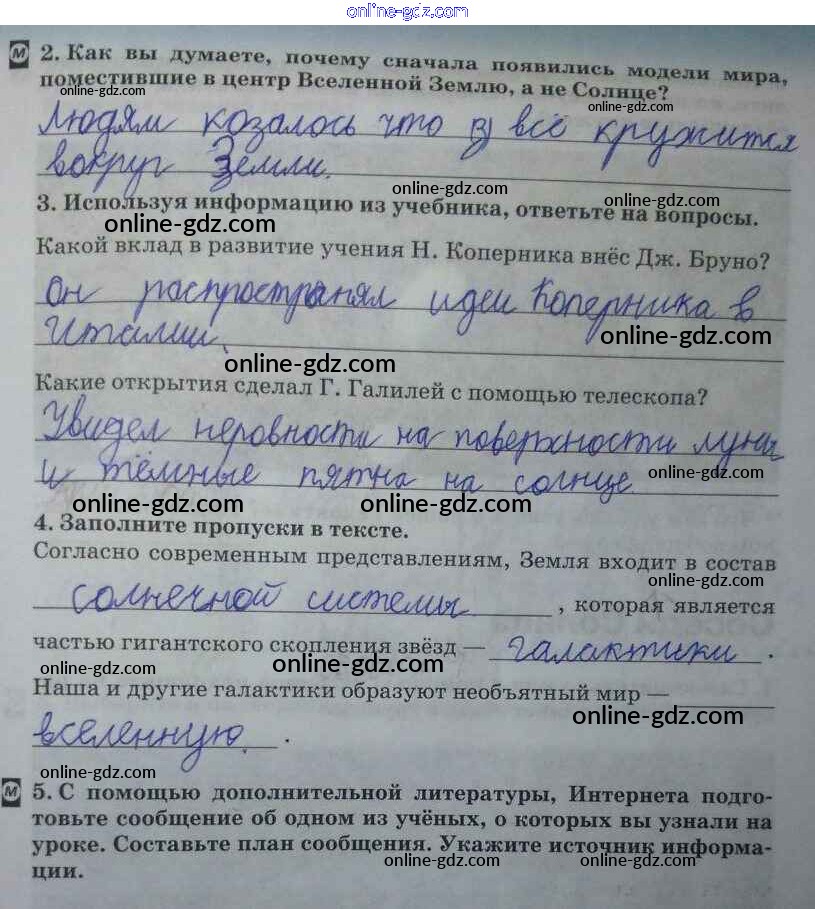 online-gdz.com
М 2. Как вы думаете, почему сначала появились модели мира,
поместившие в центр Вселенной Землю, а не Солнце?
online-gdz.com
Людям козалось что всё кружится
вокруг Земли.
online-gdz.com
online-gdz.com
3. Используя информацию из учебника, ответьте на вопросы.
online-gdz.com
Какой вклад в развитие учения Н. Коперника внёс Дж. Бруно?
Он распространял идеи Коперника в
Италии.
online-gdz.com
online-gdz.com
Какие открытия сделал Г. Галилей с помощью телескопа?
Увидел неровности на поверхности луны
и тёмные пятна на солнце.
online-gdz.com
online-gdz.com online-gdz.com
4. Заполните пропуски в тексте.
Согласно современным представлениям, Земля входит в состав
online-gdz.com
солнечной системы, которая является
частью гигантского скопления звёзд — галактики.
online-gdz.com online-gdz.com
Наша и другие галактики образуют необъятный мир —
online-gdz.com
вселенную.
online-gdz.com
М 5. С помощью дополнительной литературы, Интернета подго-
товьте сообщение об одном из учёных, о которых вы узнали на
уроке. Составьте план сообщения. Укажите источник информа-
online-gdz.com online-gdz.com
ции.